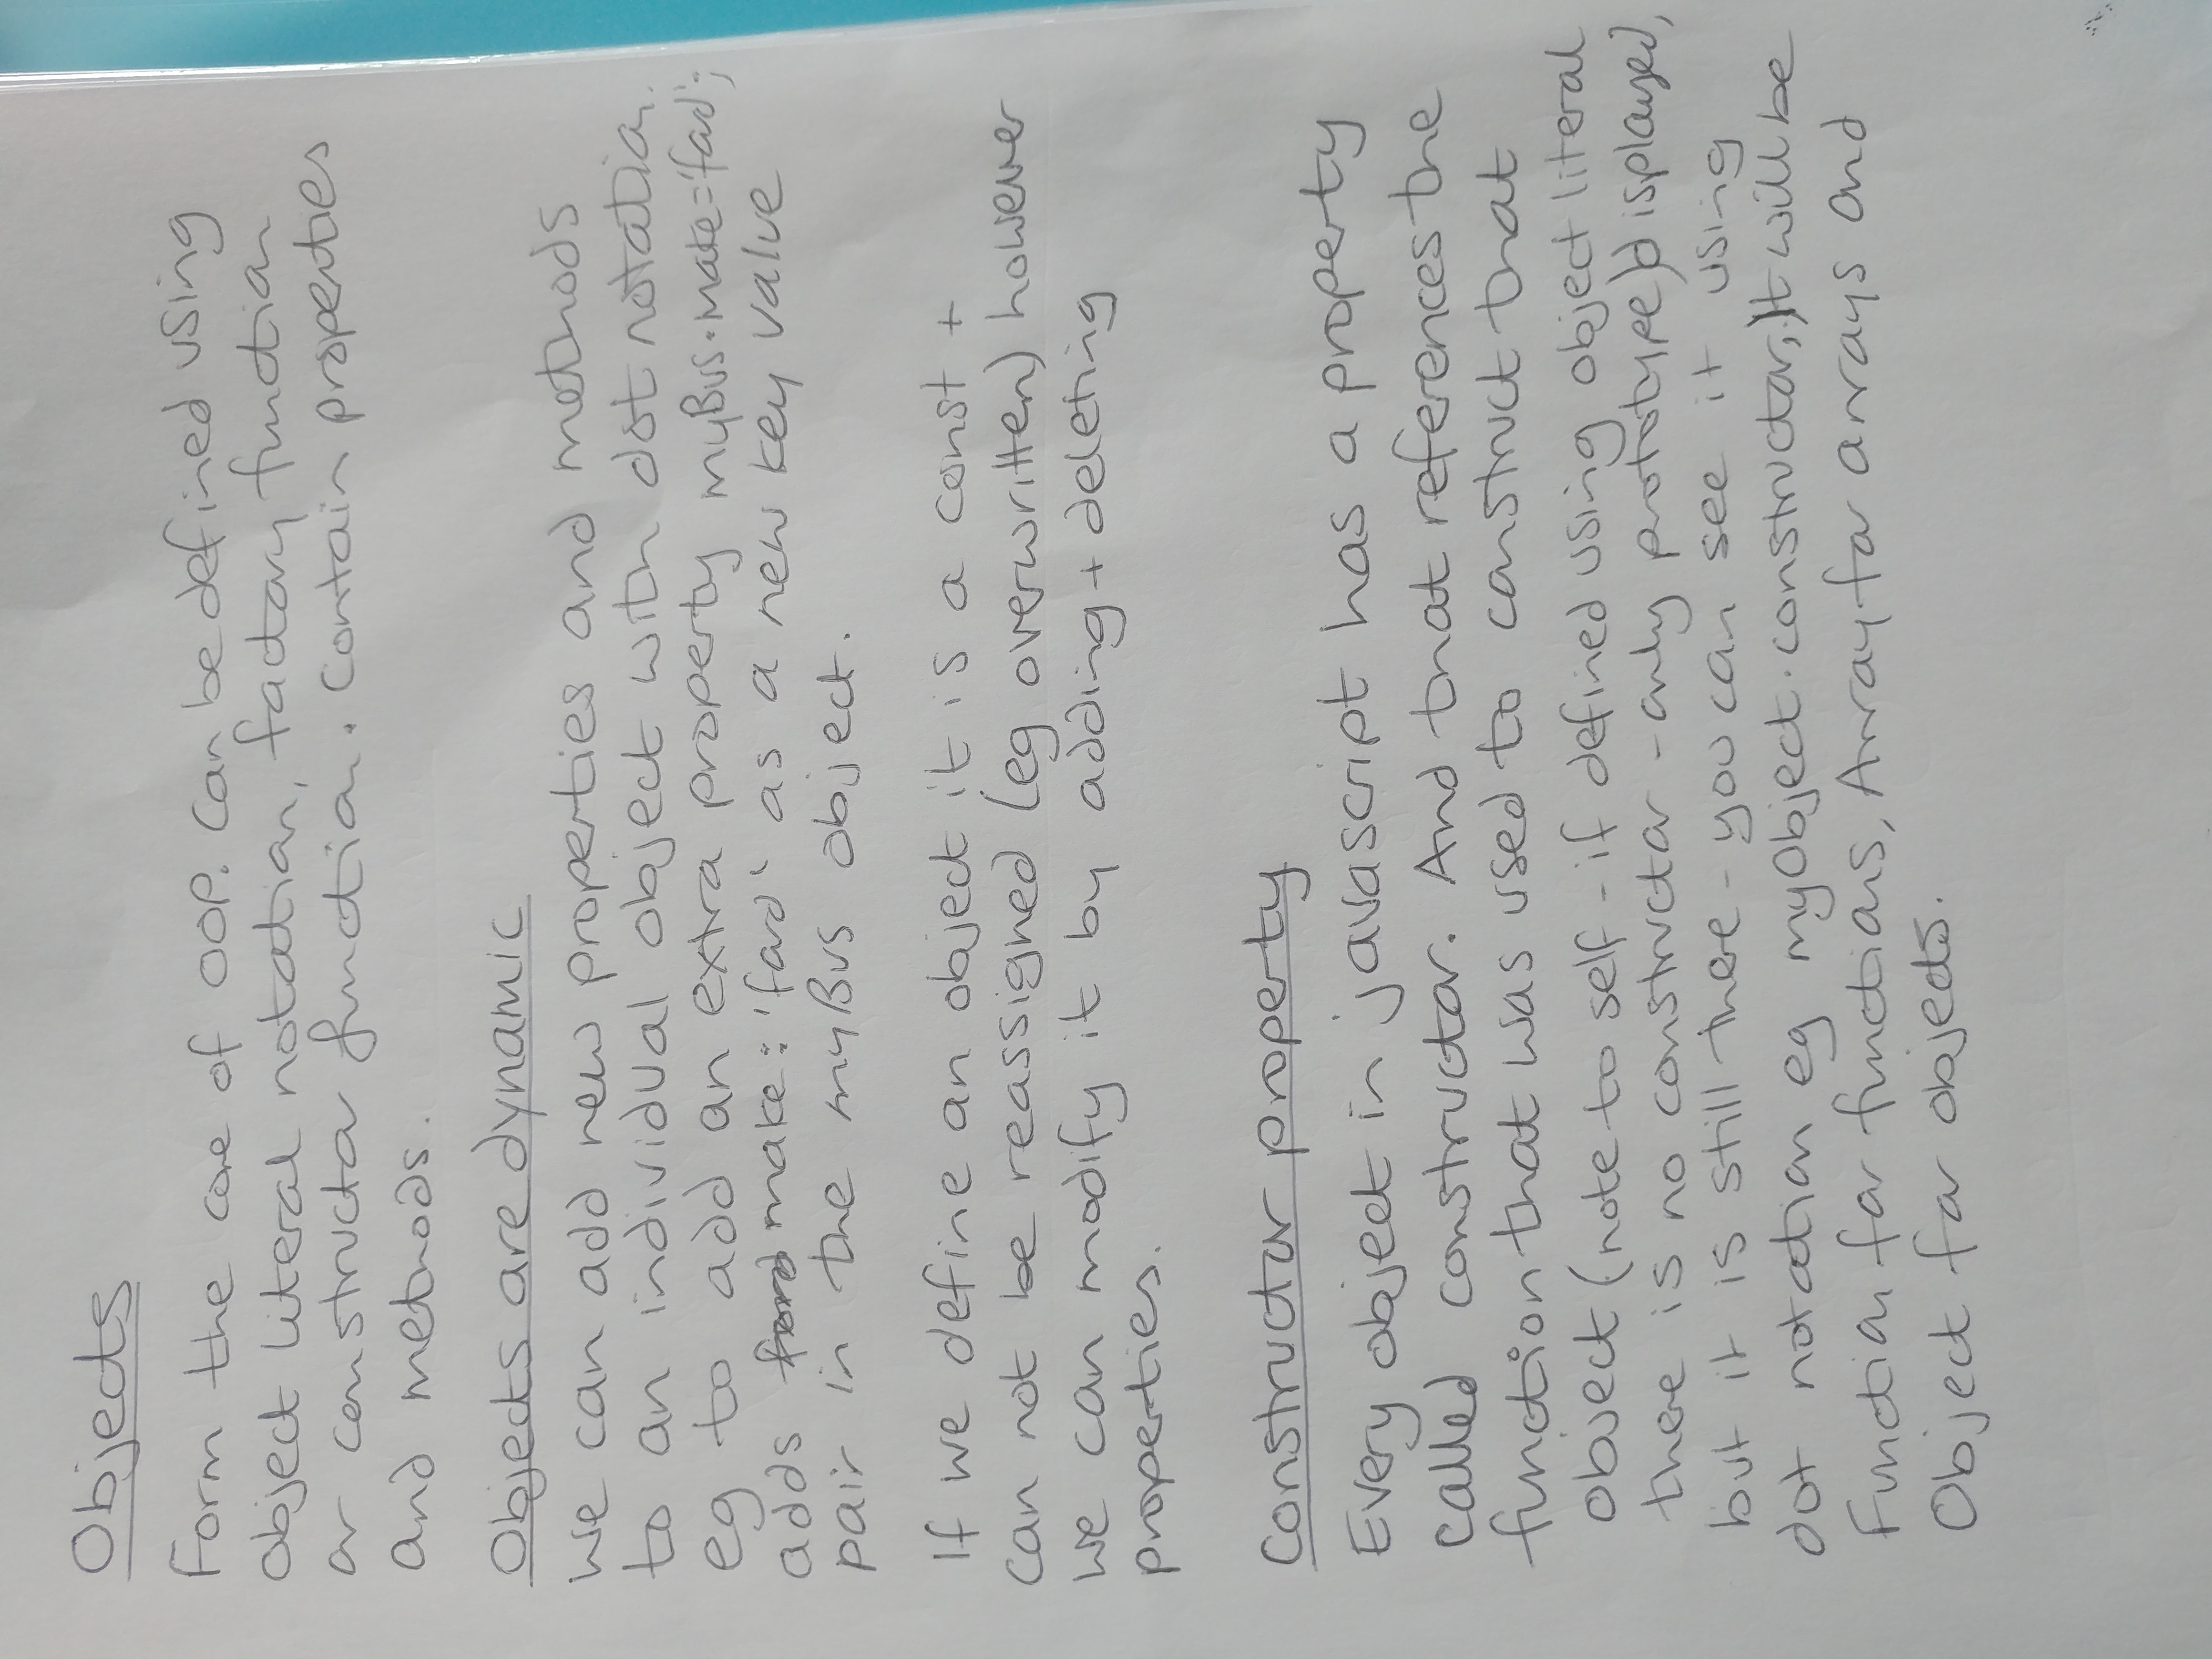 Objects
Form the core of OOP. Can be defined using
object literal notation, factory function
or constructor function. Contain properties
and methods.
Objects are dynamic
We can add new properties and methods
to an individual object with dot notation.
eg to add an extra property myBus.make='ford';
adds make: 'ford' as a new key value
pair in the myBus object.
If we define an object it is a const +
can not be reassigned (eg overwritten) however
we can modify it by adding + deleting
properties.
Constructor property
Every object in javascript has a property
called constructor. And that references the
function that was used to construct that
object (note to self - if defined using object literal
there is no constructor - only prototype) displayed,
but it is still there - you can see it using
dot notation eg myobject.constructor, It will be
Function for functions, Array for arrays and
Object for objects.